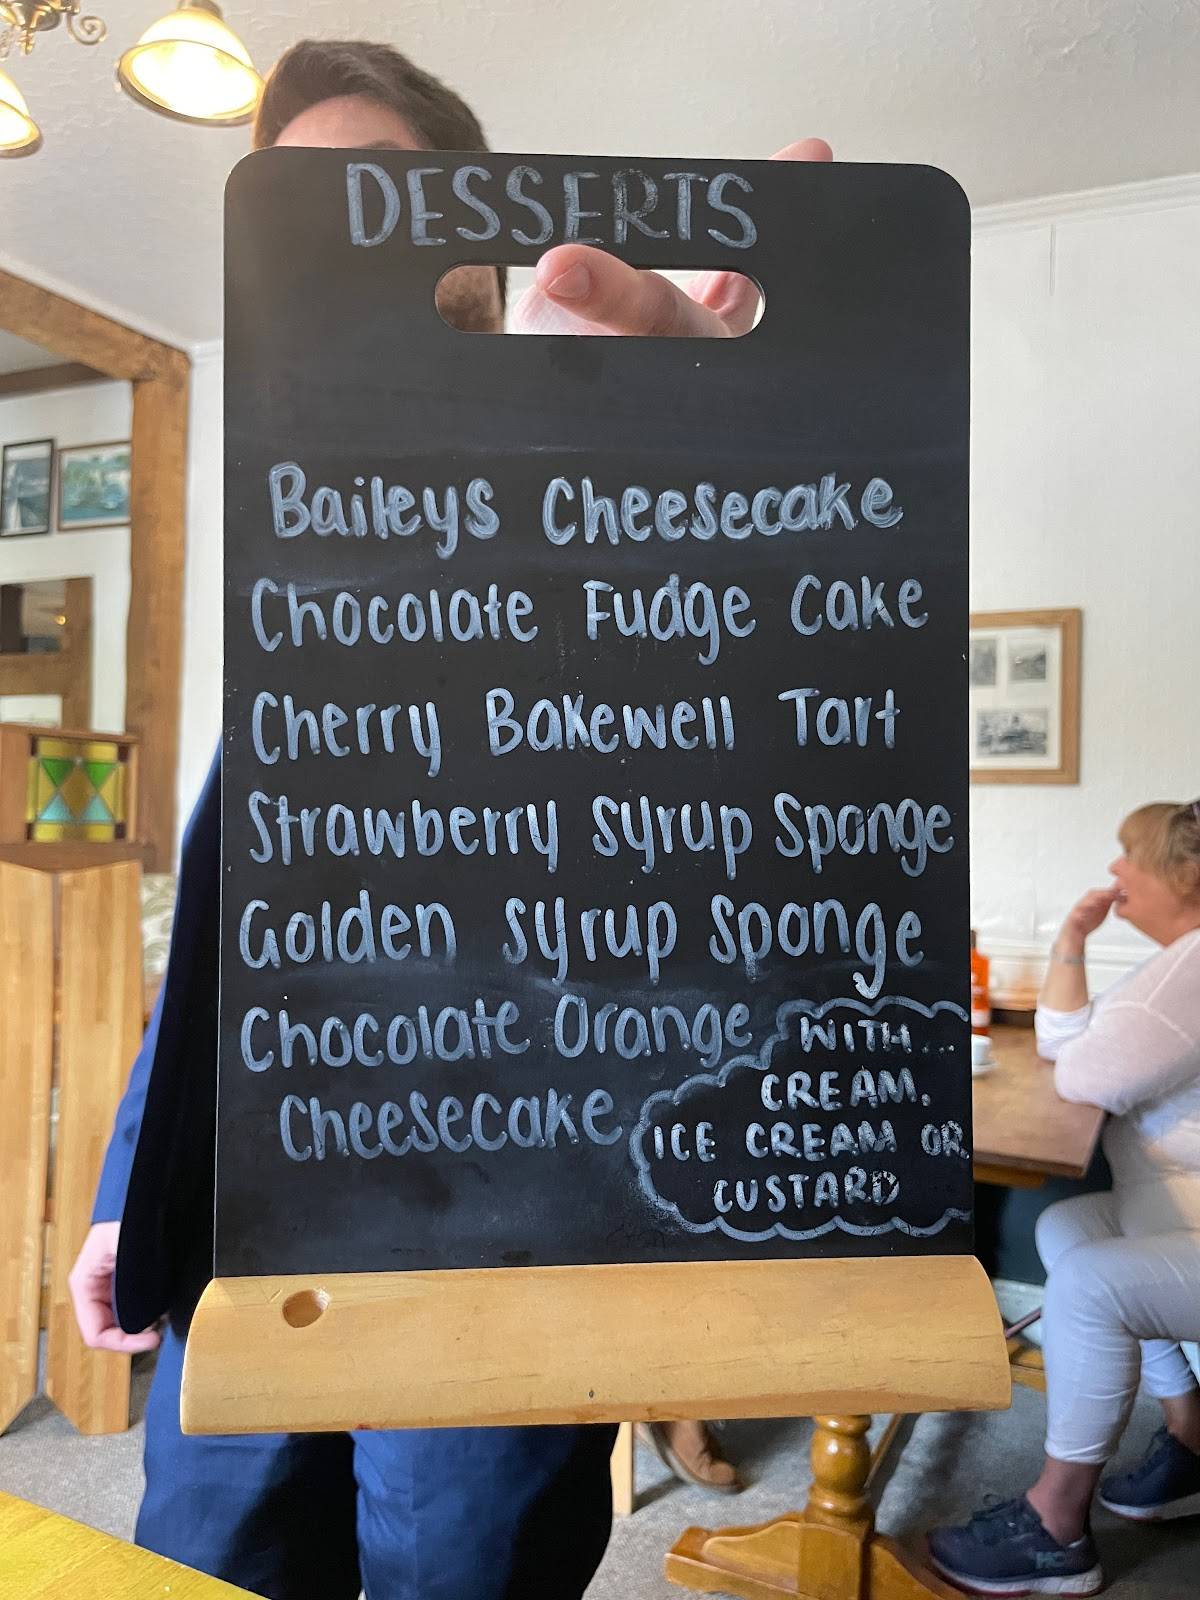 DESSERTS
Baileys Cheesecake
Chocolate Fudge Cake
Cherry Bakewell Tart
Strawberry Syrup Sponge
Golden Syrup Sponge
Chocolate Orange
Cheesecake
WITH...
CREAM,
ICE CREAM OR
CUSTARD